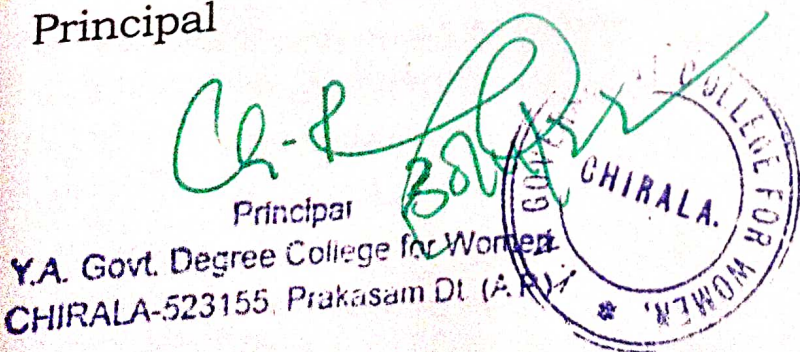 Principal
Principal
Y.A. Govt. Degree College for Women
CHIRALA-523155, Prakasam Dt. (A.P.)
COLLEGE FOR WOMEN,
CHIRALA.